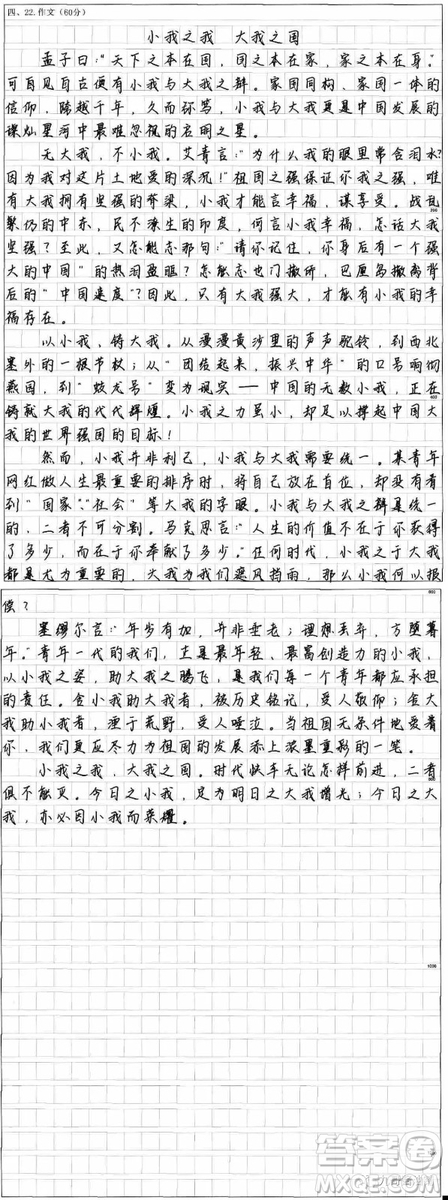 四、22.作文（60分）
小我之我 大我之国
孟子曰："天下之本在国，国之本在家，家之本在身。"
可窥见自古便有小我与大我之辩。家国同构、家国一体的
信仰，踏越千年，久而弥笃，小我与大我更是中国发展的
璀灿星河中最难忽视的启明之星。
无大我，不小我。艾青言："为什么我的眼里常含泪水？
因为我对这片土地爱的深沉！"祖国之强保证你我之强，唯
有大我拥有坚强的脊梁，小我才能言幸福，谋享受。战乱
频仍的中东，民不潦生的印度，何言小我幸福，怎话大我
坚强？至此，又怎能忘那句："请你记住，你身后有一个强
大的中国"的热泪盈眶？怎能忘也门撤侨，巴厘岛撤离背
后的"中国速度"？因此，只有大我强大，才能有小我的幸
福存在。
以小我，铸大我。从漫漫黄沙里的声声驼铃，到西北
塞外的一根节杖；从"团结起来，振兴中华"的口号响彻
燕园，到"蛟龙号"变为现实——中国的无数小我，正在
铸就大我的代代辉煌。小我之力虽小，却足以撑起中国大
我的世界强国的目标！
然而，小我并非利己，小我与大我需要统一。某青年
网红做人生最重要的排序时，将自己放在首位，却没有看
到"国家"、"社会"等大我的字眼。小我与大我之辩是统一
的，二者不可分割。马克思言："人生的价值不在于你获得
了多少，而在于你奉献了多少。"任何时代，小我之于大我
都是尤为重要的，大我为我们遮风挡雨，那么小我何以报
偿？
塞缪尔言："年岁有加，并非垂老；理想丢弃，方堕暮
年。"青年一代的我们，正是最年轻、最富创造力的小我，
以小我之姿，助大我之腾飞，是我们每一个青年都应承担
的责任。舍小我助大我者，被历史铭记，受人敬仰；舍大
我助小我者，湮于荒野，受人唾泣。当祖国无条件地爱着
你，我们更应尽力为祖国的发展添上浓墨重彩的一笔。
小我之我，大我之国。时代快车无论怎样前进，二者
俱不能灭。今日之小我，足为明日之大我增光；今日之大
我，亦必因小我而荣耀。
1000
答案圈
MXQE.COM